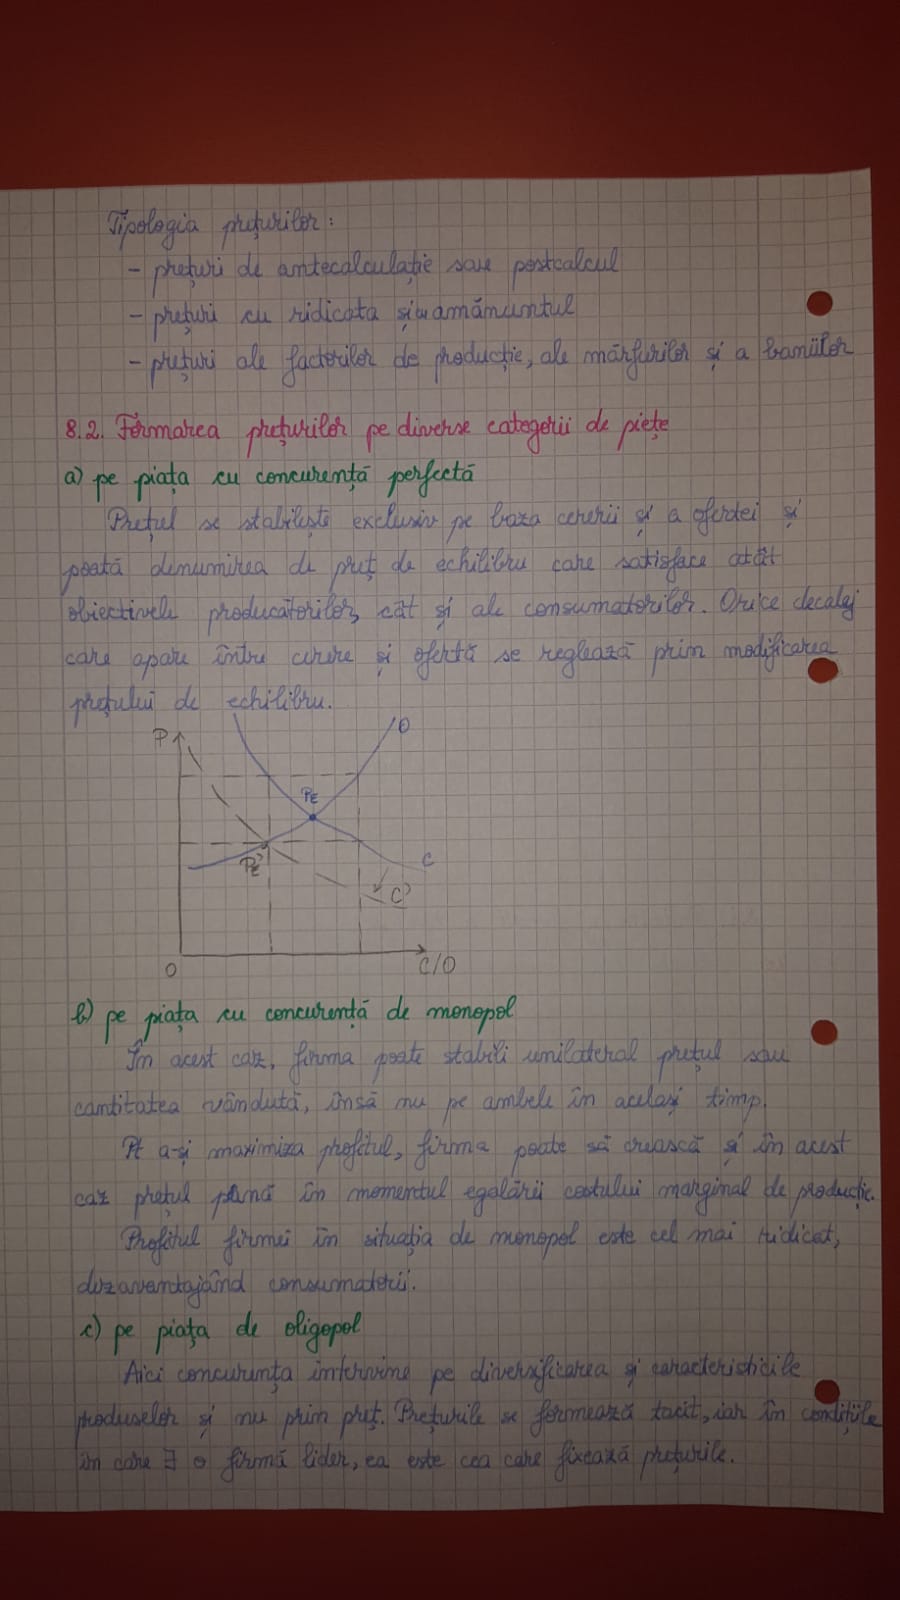 Tipologia prețurilor:
- prețuri de antecalculație sau postcalcul
- prețuri cu ridicata și cu amănuntul
- prețuri ale factorilor de producție, ale mărfurilor și a banilor
8.2. Formarea prețurilor pe diverse categorii de piețe
a) pe piața cu concurență perfectă
Prețul se stabilește exclusiv pe baza cererii și a ofertei și
poartă denumirea de preț de echilibru care satisface atât
obiectivele producătorilor, cât și ale consumatorilor. Orice decalaj
care apare între cerere și ofertă se reglează prin modificarea
prețului de echilibru.
P
O
PE
PE'
C'
C
O
C/O
b) pe piața cu concurență de monopol
În acest caz, firma poate stabili unilateral prețul sau
cantitatea vândută, însă nu pe ambele în același timp.
Pt a-și maximiza profitul, firma poate să crească și în acest
caz prețul până în momentul egalării costului marginal de producție.
Profitul firmei în situația de monopol este cel mai ridicat,
dezavantajând consumatorii.
c) pe piața de oligopol
Aici concurența intervine pe diversificarea și caracteristicile
produselor și nu prin preț. Prețurile se formează tacit, iar în condițiile
în care ∃ o firmă lider, ea este cea care fixează prețurile.